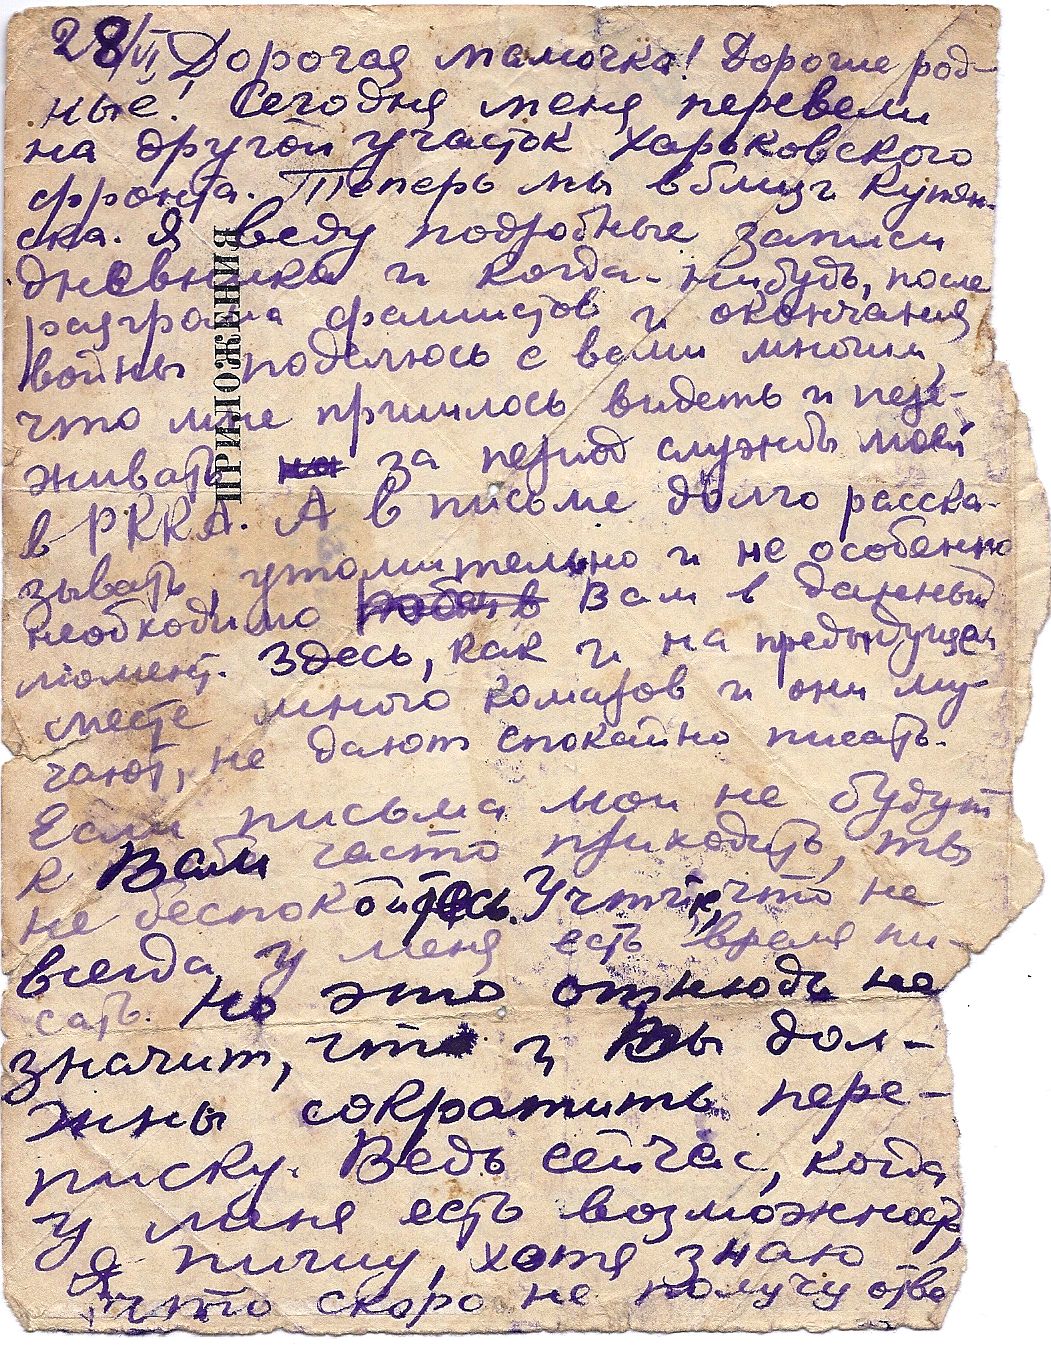 28/VI Дорогая мамочка! Дорогие род-
ные! Сегодня меня перевели
на другой участок Харьковского
фронта. Теперь мы вблизи Купян-
ска. Я веду подробные записи
дневника и когда-нибудь, после
разгрома фашистов и окончания
войны поделюсь с вами многим,
что мне пришлось видеть и пере-
живать на за период службы моей
в РККА. А в письме долго расска-
зывать утомительно и не особенно
необходимо Вам в данный
момент. Здесь, как и на предыдущем
месте много комаров и они му-
чают, не дают спокойно писать.
Если письма мои не будут
к Вам часто приходить, ты
не беспокойтесь. Учтите, что не
всегда у меня есть время пи-
сать. Но это отнюдь не
значит, что и Вы дол-
жны сократить пере-
писку. Ведь сейчас, когда
у меня есть возможность,
я пишу, хотя знаю
что скоро не получу отве
ПРИЛОЖЕНИЯ